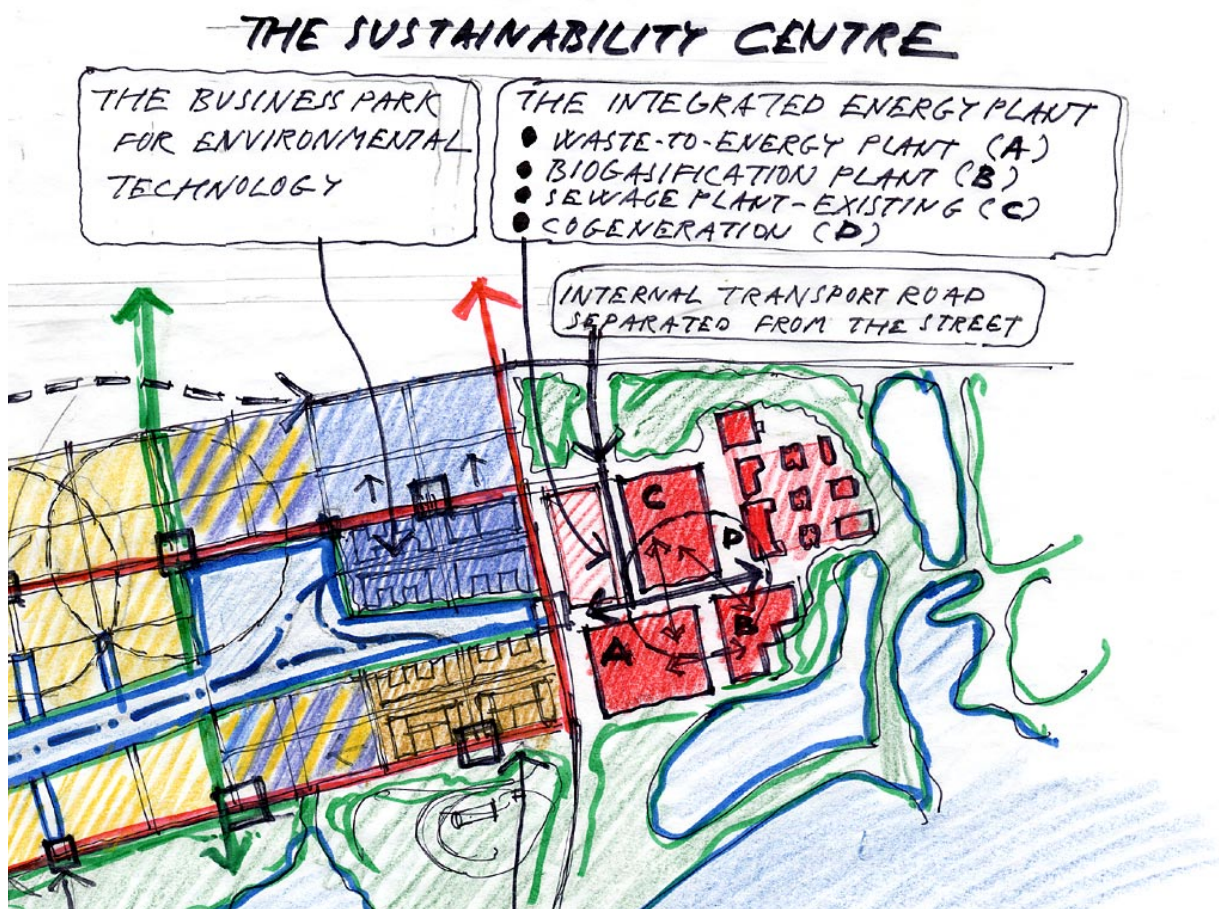 THE SUSTAINABILITY CENTRE
THE BUSINESS PARK
FOR ENVIRONMENTAL
TECHNOLOGY
THE INTEGRATED ENERGY PLANT
● WASTE-TO-ENERGY PLANT (A)
● BIOGASIFICATION PLANT (B)
● SEWAGE PLANT-EXISTING (C)
● COGENERATION (D)
INTERNAL TRANSPORT ROAD
SEPARATED FROM THE STREET
C
D
B
A